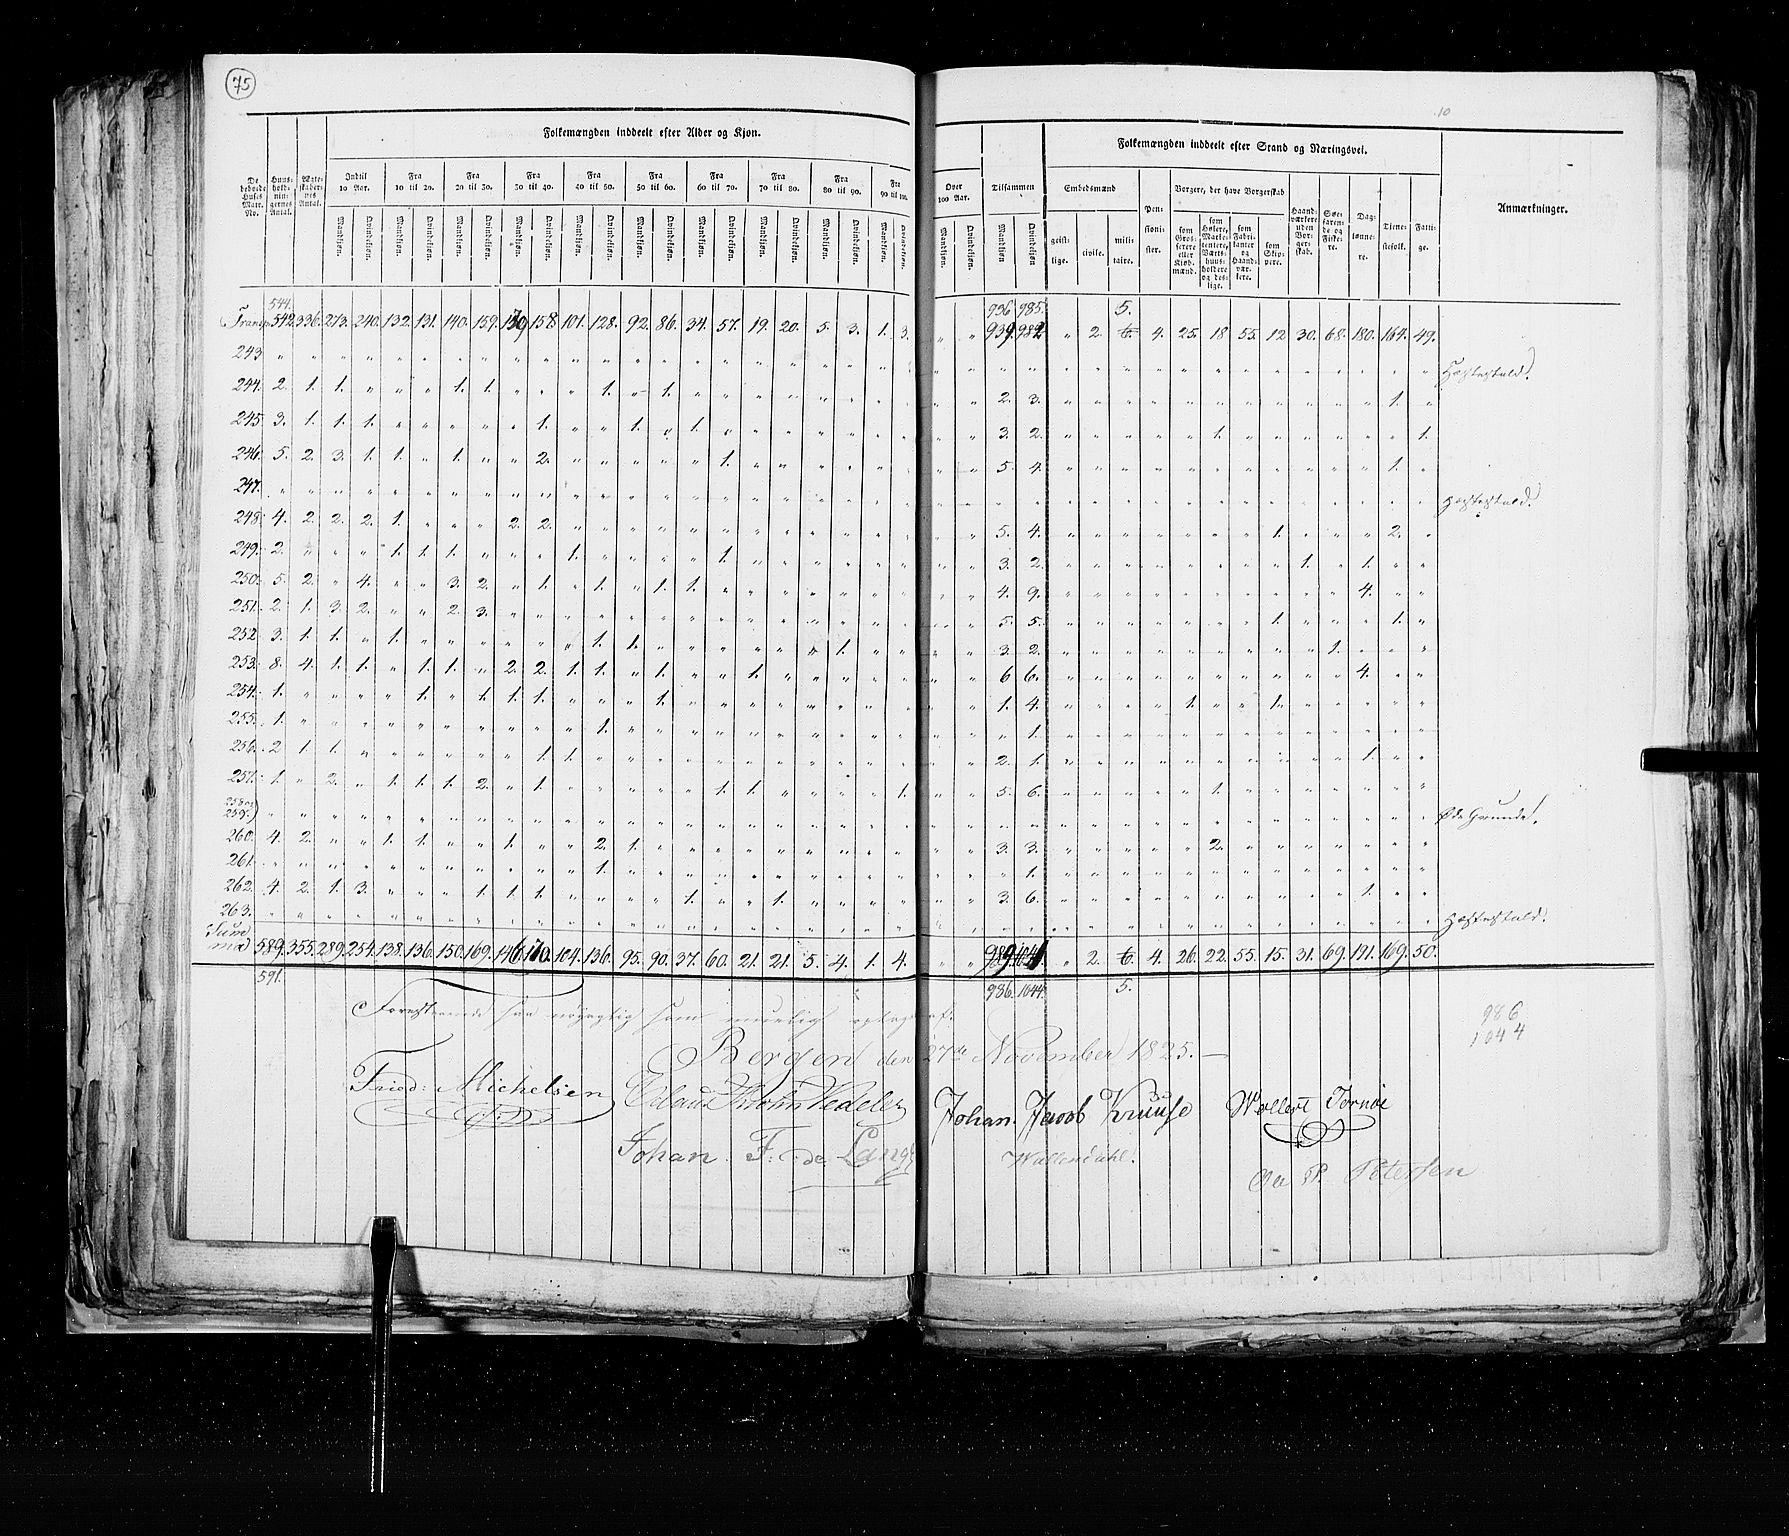 75
10
Folkemængden inddeelt efter Alder og Kjøn.
Folkemængden inddeelt efter Stand og Næringsvei.
De bebyede Huses Matr. No.
Huusholdningernes Antal.
Ægteskabernes Antal.
Indtil 10 Aar.
Fra 10 til 20.
Fra 20 til 30.
Fra 30 til 40.
Fra 40 til 50.
Fra 50 til 60.
Fra 60 til 70.
Fra 70 til 80.
Fra 80 til 90.
Fra 90 til 100.
Over 100 Aar.
Tilsammen
Mandkjøn. Qvindekjøn.
Embedsmænd
geistlige. civile. militaire.
Pensionister.
Borgere, der have Borgerskab
som Grosserere eller Kiøbmænd.
som Høkere, Marketentere, Værtshuusholdere og deslige.
som Fabrikanter og Haandværkere.
som Skippere.
Haandværkere uden Borgerskab.
Søefarende og Fiskere.
Daglønnere.
Tienestefolk.
Fattige.
Anmærkninger.
544. 936 985. 5.
Transp. 542 336. 273. 240. 132. 131. 140. 159. 139 158 101. 128. 92. 86. 34. 57. 19. 20. 5. 3. 1. 3. " " 939. 982 " 2. 6. 4. 25. 18 55. 12 30. 68. 180. 164. 49.
243 Hestestald.
244. 2. 1. 1. " " " 1. 1. " " " 1. " 1. 2. 3. 1.
245. 3. 1. 1. 1. 1. 1. 1. 3. 2. 1. 1.
246. 5. 2. 3. 1. 1. " 1. " " 2. 1. 5. 4. 1.
247. Hestestald.
248. 4. 2. 2. 2. 1. 2. 2. 5. 4. 1. 2.
249. 2. " " " 1. 1. 1. 1. 1. 3. 2. 1. 1.
250. 5. 2. " 4. " " 3. 2. " 1. " 1. " 1. 1. 4. 9. 4.
251. 2. 1. 3. 2. " " 2. 3. 5. 5. 1. 1.
252 3. 1. 1. " 1. 1. 1. 1. 3. 2. 1.
253. 8. 4. 1. 1. " 1. 1. " 2. 2. 1. 1. " 1. " " 1. 6 6. 4.
254. 1. 1. " 1. 1. 1. 1. 1. 4. 1. 1.
255. 1. 1. 1.
256. 2 1. 1. 1. 1. 2. 1. 1.
257. 1. " 2. " 1. 1. 1. 2. " 1. 1. 1. 1. 5. 6. 1.
258 og 259. Øde Grunde.
260. 4. 2. " " 1. 1. " " 1. " " 2. 1. 3. 3. 2.
261. 1. 1.
262. 4. 2. 1. 3. 1. 1. 1. 1. 1. 3. 6. 1.
263. Hestestald.
Summa 589. 355. 289. 254. 138. 136. 150. 169. 146. 170. 104. 136. 95. 90. 37. 60. 21. 21. 5. 4. 1. 4. " " 989. 1041. " 2. 6. 4. 26. 22. 55. 15. 31. 69. 191. 169. 50.
591. 986. 1044. 5.
986
1044
Bergen den 27de November 1825.
Fried: Michelsen
Johan Jacob Kruuse
Wollert Tornøe
Johan F. de Lange
Wallendahl.
Ole P. Petersen